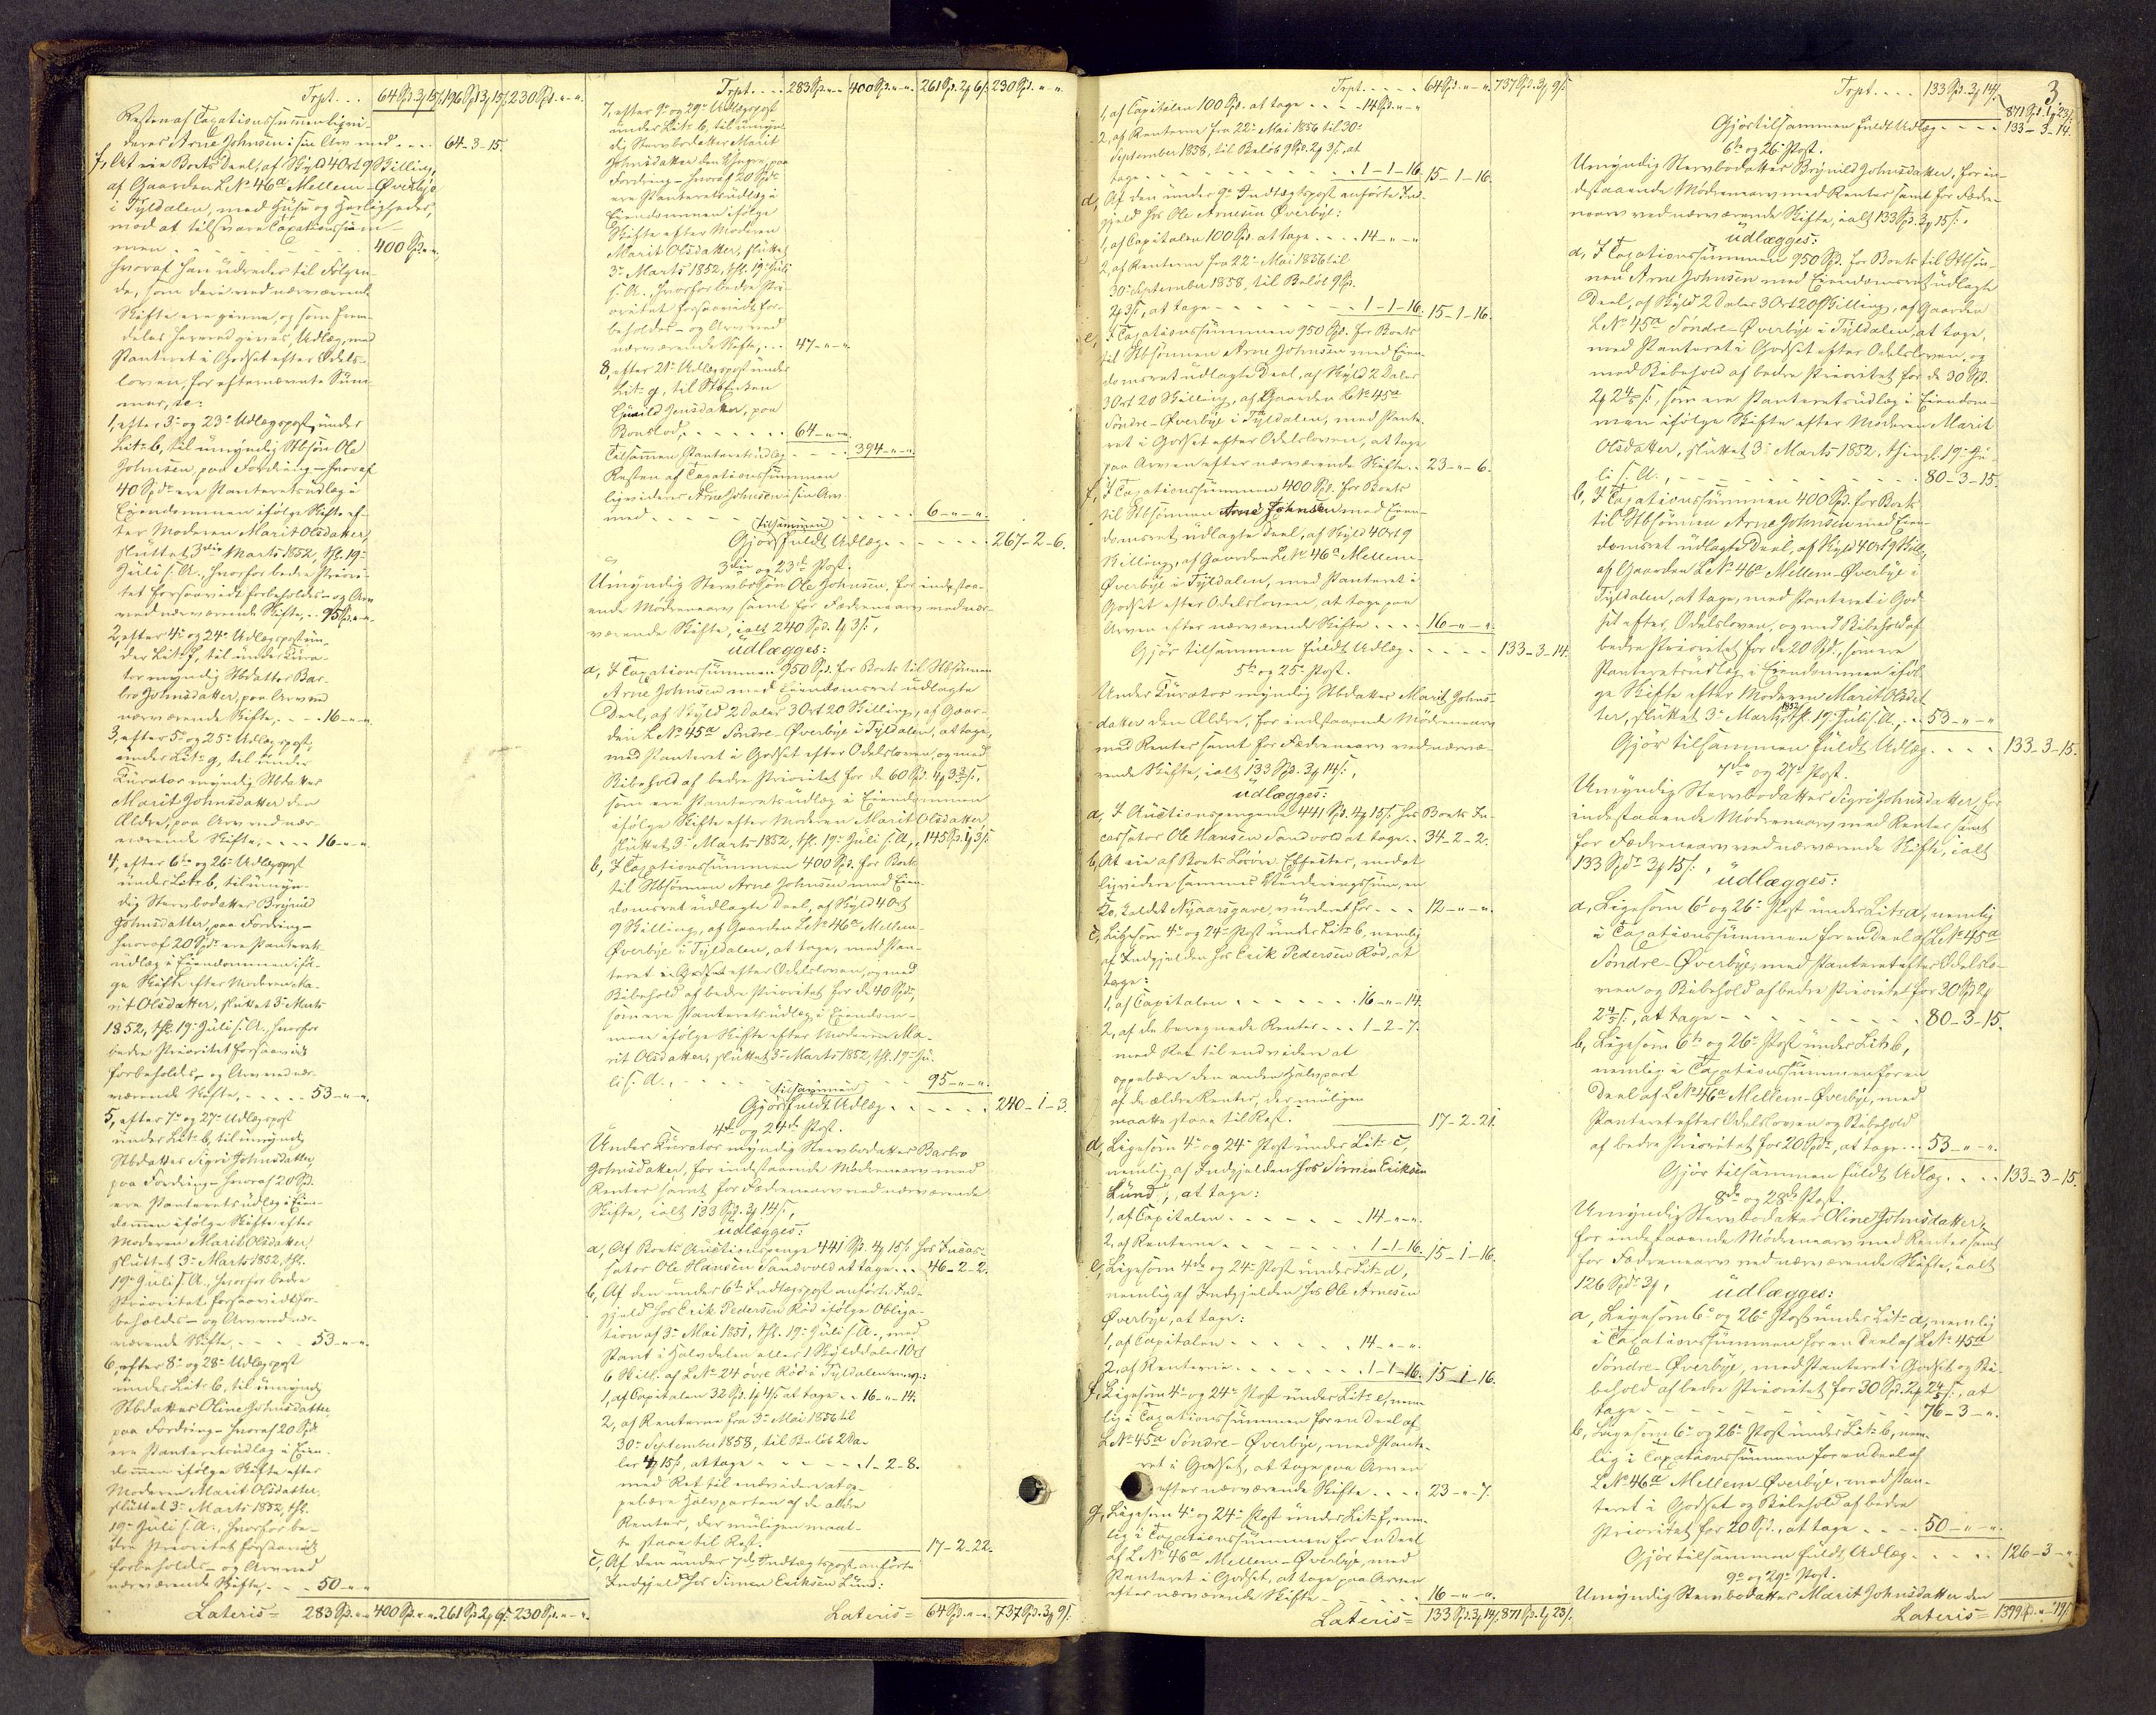 Trpt... 64 Spd. 3 ₰ 15 s. 196 Spd. 3 ₰ 15 s. 230 Spd. " - "
Resten af Taxationssummen liqvi-
deres Arne Johnsen i sin Arv med.... 64-3-15.
f, At eie Boets Deel, af Skyld 4 Ort 9 Skilling,
af Gaarden L№ 46a Mellem-Øverbye
i Tyldalen, med Huse og Herligheder,
mod at tilsvare Taxationssum-
men - - - 400 Spd. " "
hvoraf han udreder til Følgen-
de, som deri ved nærværende
Skifte ere givne, og som frem-
deles herved gives, Udlæg, med
Panteret i Godset efter Odels-
loven, for efternævnte Sum-
mer, sc:
1, efter 3die og 23de Udlægspost, under
Lit: b, til umyndig Stbsøn Ole
Johnsen, paa Fordring - hvoraf
40 Spdr ere Panteretsudlæg i
Eiendommen ifølge Skifte ef-
ter Moderen Marit Olsdatter,
sluttet 3die Marts 1852, thl. 19de
Juli s. A., hvorfor bedre Priori-
tet forsaavidt forbeholdes - og Arv
ved nærværende Skifte, .. 95 Spd. " - "
2, efter 4de og 24de Udlægspost un-
der Lit: f, til under Kura-
tor myndig Stbdatter Bar-
bro Johnsdatter, paa Arv ved
nærværende Skifte, - - . 16 - " - "
3, efter 5te og 25de Udlægspost,
under Lit: g, til under
Kurator myndig Stbdatter
Marit Johnsdatter den
Ældre, paa Arv ved nær-
værende Skifte, . . . . 16 - " - "
4, efter 6te og 26de Udlægspost
under Lit: b, til umyn-
dig Stervbodatter Brynild
Johnsdatter, paa Fordring -
hvoraf 20 Spdr ere Panterets-
udlæg i Eiendommen iføl-
ge Skifte efter Moderen Ma-
rit Olsdatter, sluttet 3de Marts
1852, thl. 19de Juli s. A., hvorfor
bedre Prioritet forsaavidt
forbeholdes, - og Arv ved nær-
værende Skifte, . . . . . 53 - " - "
5, efter 7de og 27de Udlægspost
under Lit: b, til umyndig
Stbdatter Sigri Johnsdatter,
paa Fordring - hvoraf 20 Spd.
ere Panteretsudlæg i Eien-
dommen ifølge Skifte efter
Moderen Marit Olsdatter,
sluttet 3de Marts 1852, thl.
19de Juli s. A., hvorfor bedre
Prioritet forsaavidt for-
beholdes - og Arv ved nær-
værende Skifte, . . . 53 - " - "
6, efter 8de og 28de Udlægspost
under Lit: b, til umyndig
Stbdatter Oline Johnsdatter,
paa Fordring - hvoraf 20 Spdr
ere Panteretsudlæg i Eien-
dommen ifølge Skifte efter
Moderen Marit Olsdatter,
sluttet 3de Marts 1852, thl.
19de Juli s. A., hvorfor be-
dre Prioritet forsaavidt
forbeholdes - og Arv ved
nærværende Skifte, . . . 50 - " - "
Lateris = 283 Spd. " - " 400 Spd. " - " 261 Spd. 2 ₰ 6 s. 230 Spd. " - "
Trpt.... 283 Spd. " - " 400 Spd. " - " 261 Spd. 2 ₰ 6 s. 230 Spd. " - "
7, efter 9de og 29de Udlægspost
under Lit: b, til umyn-
dig Stervbodatter Marit
Johnsdatter den Yngre, paa
Fordring - hvoraf 20 Spdr
ere Panteretsudlæg i
Eiendommen ifølge
Skifte efter Moderen
Marit Olsdatter, sluttet
3de Marts 1852, thl. 19de Juli
s. A., hvorfor bedre Pri-
oritet forsaavidt for-
beholdes - og Arv ved
nærværende Skifte, . . . 47 - " - "
8, efter 21de Udlægspost under
Lit: g, til Stbenken
Gunild Jensdatter, paa
Boeslod, . . . . . . 64 - " - "
Tilsammen Panteretsudlæg . . . . 394 - " - "
Resten af Taxationssummen
liqvideres Arne Johnsen i sin Arv
med . . . . . . 6 - " - "
Gjør tilsammen fuldt Udlæg . . . . . . 267-2-6.
3die og 23de Post.
Umyndig Stervbosøn Ole Johnsen, for indestaa-
ende Mødrenearv samt for Fædrenearv ved nær-
værende Skifte, ialt 240 Spd. 1 ₰ 3 s.,
udlægges:
a, I Taxationssummen 950 Spd. for Boets til Stbsønnen
Arne Johnsen med Eiendomsret udlagte
Deel, af Skyld 2 Daler 3 Ort 20 Skilling, af Gaar-
den L№ 45a Søndre-Øverbye i Tyldalen, at tage,
med Panteret i Godset efter Odelsloven, og med
Bibehold af bedre Prioritet for de 60 Spd. 4 ₰ 3 3/5 s.,
som ere Panteretsudlæg i Eiendommen
ifølge Skifte efter Moderen Marit Olsdatter,
sluttet 3de Marts 1852, thl. 19de Juli s. A., 145 Spd. 1 ₰ 3 s.
b, I Taxationssummen 400 Spd. for Boets
til Stbsønnen Arne Johnsen med Eien-
domsret udlagte Deel, af Skyld 4 Ort
9 Skilling, af Gaarden L№ 46a Mellem-
Øverbye i Tyldalen, at tage, med Pan-
teret i Godset efter Odelsloven, og med
Bibehold af bedre Prioritet for de 40 Spdr,
som ere Panteretsudlæg i Eiendom-
men ifølge Skifte efter Moderen Ma-
rit Olsdatter, sluttet 3de Marts 1852, thl. 19de Ju-
li s. A., . . . . . . 95 - " - "
Gjør tilsammen fuldt Udlæg . . . . . . 240-1-3.
4de og 24de Post.
Under Kurator myndig Stervbodatter Barbro
Johnsdatter, for indestaaende Mødrenearv med
Renter samt for Fædrenearv ved nærværende
Skifte, ialt 133 Spd. 3 ₰ 14 s.,
udlægges:
a, Af Boets Auctionspenge 441 Spd. 4 ₰ 15 s. hos Incas-
sator Ole Hansen Sandvold at tage . . . 46-2-2.
b, Af den under 6te Indtægtspost anførte Ind-
gjeld hos Erik Pedersen Rød ifølge Obliga-
tion af 3de Mai 1851, thl. 19de Juli s. A., med
Pant i Halvdelen eller 1 Skylddaler 1 Ort
6 Skill. af L№ 24 øvre Rød i Tyldalen mv.:
1, af Capitalen 32 Spd. 1 ₰ 4 s. at tage . . 16 - " - 14.
2, af Renterne fra 3de Mai 1856 til
30de September 1858, til Beløb 2 Da-
ler 4 ₰ 15 s., at tage . . . . . . 1-2-8.
med Ret til endvidere at op-
pebære Halvparten af de ældre
Renter, der muligen maat-
te staae til Rest. 17-2-22.
c, Af den under 7de Indtægtspost anførte
Indgjeld hos Simen Eriksen Lund:
Lateris = 64 Spd. " - " 737 Spd. 3 ₰ 9 s.
Trpt..... 64 Spd. " - " 737 Spd. 3 ₰ 9 s.
1, af Capitalen 100 Spd. at tage . . . . 14 Spd. " - "
2, af Renterne fra 22de Mai 1856 til 30te
September 1858, til Beløb 9 Spd. 2 ₰ 3 s., at
tage . . . . . . . . 1-1-16. 15-1-16.
d, Af den under 9de Indtægtspost anførte Ind-
gjeld hos Ole Arnesen Øverbye:
1, af Capitalen 100 Spd. at tage . . . . 14 - " - "
2, af Renterne fra 22de Mai 1856 til
30de September 1858, til Beløb 9 Spd.
2 ₰ 3 s., at tage . . . . . . 1-1-16. 15-1-16.
e, I Taxationssummen 950 Spd. for Boets
til Stbsønnen Arne Johnsen med Eien-
domsret udlagte Deel, af Skyld 2 Daler
3 Ort 20 Skilling, af Gaarden L№ 45a
Søndre-Øverbye i Tyldalen, med Pante-
ret i Godset efter Odelsloven, at tage
paa Arven efter nærværende Skifte .. 23 - " - 6.
f, I Taxationssummen 400 Spd. for Boets
til Stbsønnen Arne Johnsen med Eien-
domsret udlagte Deel, af Skyld 4 Ort 9
Skilling, af Gaarden L№ 46a Mellem-
Øverbye i Tyldalen, med Panteret i
Godset efter Odelsloven, at tage paa
Arven efter nærværende Skifte . . . . 16 - " - "
Gjør tilsammen fuldt Udlæg . . . . . 133-3-14.
5te og 25de Post.
Under Kurator myndig Stbdatter Marit Johns-
datter den Ældre, for indestaaende Mødrenearv
med Renter samt for Fædrenearv ved nærvæ-
rende Skifte, ialt 133 Spd. 3 ₰ 14 s.,
udlægges:
a, I Auctionspengene 441 Spd. 4 ₰ 15 s. hos Boets In-
cassator Ole Hansen Sandvold at tage .. 34-2-2.
b, At eie af Boets Løsøre Effecter, mod at
liqvidere sammes Vurderingssum, en
Ko, kaldet Nyaarsgave, vurderet for . . . 12 - " - "
c, Ligesom 4de og 24de Post under Lit: b, nemlig
af Indgjelden hos Erik Pedersen Rød, at
tage:
1, af Capitalen . . . . . . . 16 - " - 14.
2, af de beregnede Renter . . . 1-2-7.
med Ret til endvidere at
oppebære den anden Halvpart
af de ældre Renter, der muligen
maatte staae til Rest. 17-2-21.
d, Ligesom 4de og 24de Post under Lit: c,
nemlig af Indgjelden hos Simen Eriksen
Lund, at tage:
1, af Capitalen . . . . . . 14 - " - "
2, af Renterne . . . . . . 1-1-16. 15-1-16.
e, Ligesom 4de og 24de Post under Lit: d,
nemlig af Indgjelden hos Ole Arnesen
Øverbye, at tage:
1, af Capitalen . . . . . . 14 - " - "
2, af Renterne . . . . . . 1-1-16. 15-1-16.
f, Ligesom 4de og 24de Post under Lit: e, nem-
lig i Taxationssummen for en Deel af
L№ 45a Søndre-Øverbye, med Pante-
ret i Godset, at tage paa Arven
efter nærværende Skifte . . . . 23 - " - 7.
g, Ligesom 4de og 24de Post under Lit: f, nem-
lig i Taxationssummen for en Deel
af L№ 46a Mellem-Øverbye, med
Panteret i Godset, at tage paa Arven
efter nærværende Skifte . . . . 16 - " - "
Lateris = 133 Spd. 3 ₰ 14 s. 871 Spd. 1 ₰ 23 s.
3
Trpt.... 133 Spd. 3 ₰ 14 s. 871 Spd. 1 ₰ 23 s.
Gjør tilsammen fuldt Udlæg . . . . 133-3-14.
6te og 26de Post.
Umyndig Stervbodatter Brynild Johnsdatter, for in-
destaaende Mødrenearv med Renter samt for Fædre-
nearv ved nærværende Skifte, ialt 133 Spd. 3 ₰ 15 s.,
udlægges:
a, I Taxationssummen 950 Spd. for Boets til Stbsøn-
nen Arne Johnsen med Eiendomsret udlagte
Deel, af Skyld 2 Daler 3 Ort 20 Skilling, af Gaarden
L№ 45a Søndre-Øverbye i Tyldalen, at tage,
med Panteret i Godset efter Odelsloven, og
med Bibehold af bedre Prioritet for de 30 Spd.
2 ₰ 2 4/5 s., som ere Panteretsudlæg i Eiendom-
men ifølge Skifte efter Moderen Marit
Olsdatter, sluttet 3de Marts 1852, thingl. 19de Ju-
li s. A., . . . . . . 80-3-15.
b, I Taxationssummen 400 Spd. for Boets
til Stbsønnen Arne Johnsen med Eien-
domsret udlagte Deel, af Skyld 4 Ort 9 Skill.,
af Gaarden L№ 46a Mellem-Øverbye i
Tyldalen, at tage, med Panteret i God-
set efter Odelsloven, og med Bibehold af
bedre Prioritet for de 20 Spd., som ere
Panteretsudlæg i Eiendommen iføl-
ge Skifte efter Moderen Marit Olsdat-
ter, sluttet 3de Marts 1852, thl. 19de Juli s. A., .. 53 - " - "
Gjør tilsammen fuldt Udlæg . . . . 133-3-15.
7de og 27de Post.
Umyndig Stervbodatter Sigri Johnsdatter, for
indestaaende Mødrenearv med Renter samt
for Fædrenearv ved nærværende Skifte, ialt
133 Spdr 3 ₰ 15 s., udlægges:
a, Ligesom 6te og 26de Post under Lit: a, nemlig
i Taxationssummen for en Deel af L№ 45a
Søndre-Øverbye, med Panteret efter Odelslo-
ven og Bibehold af bedre Prioritet for 30 Spd. 2 ₰
2 4/5 s., at tage . . . . . . 80-3-15.
b, Ligesom 6te og 26de Post under Lit: b,
nemlig i Taxationssummen for en
Deel af L№ 46a Mellem-Øverbye, med
Panteret efter Odelsloven og Bibehold
af bedre Prioritet for 20 Spdr, at tage . . . 53 - " - "
Gjør tilsammen fuldt Udlæg . . . . 133-3-15.
8de og 28de Post.
Umyndig Stervbodatter Oline Johnsdatter,
for indestaaende Mødrenearv med Renter samt
for Fædrenearv ved nærværende Skifte, ialt
126 Spdr 3 ₰, udlægges:
a, Ligesom 6te og 26de Post under Lit: a, nemlig
i Taxationssummen for en Deel af L№ 45a
Søndre-Øverbye, med Panteret i Godset og Bi-
behold af bedre Prioritet for 30 Spd. 2 ₰ 2 4/5 s., at
tage . . . . . . 76-3 - "
b, Ligesom 6te og 26de Post under Lit: b, nem-
lig i Taxationssummen for en Deel af
L№ 46a Mellem-Øverbye, med Pan-
teret i Godset og Bibehold af bedre
Prioritet for 20 Spd., at tage . . . . 50 - " - "
Gjør tilsammen fuldt Udlæg . . . . 126-3 - "
9de og 29de Post.
Umyndig Stervbodatter Marit Johnsdatter den
Lateris = 1399 Spd. " - 19 s.